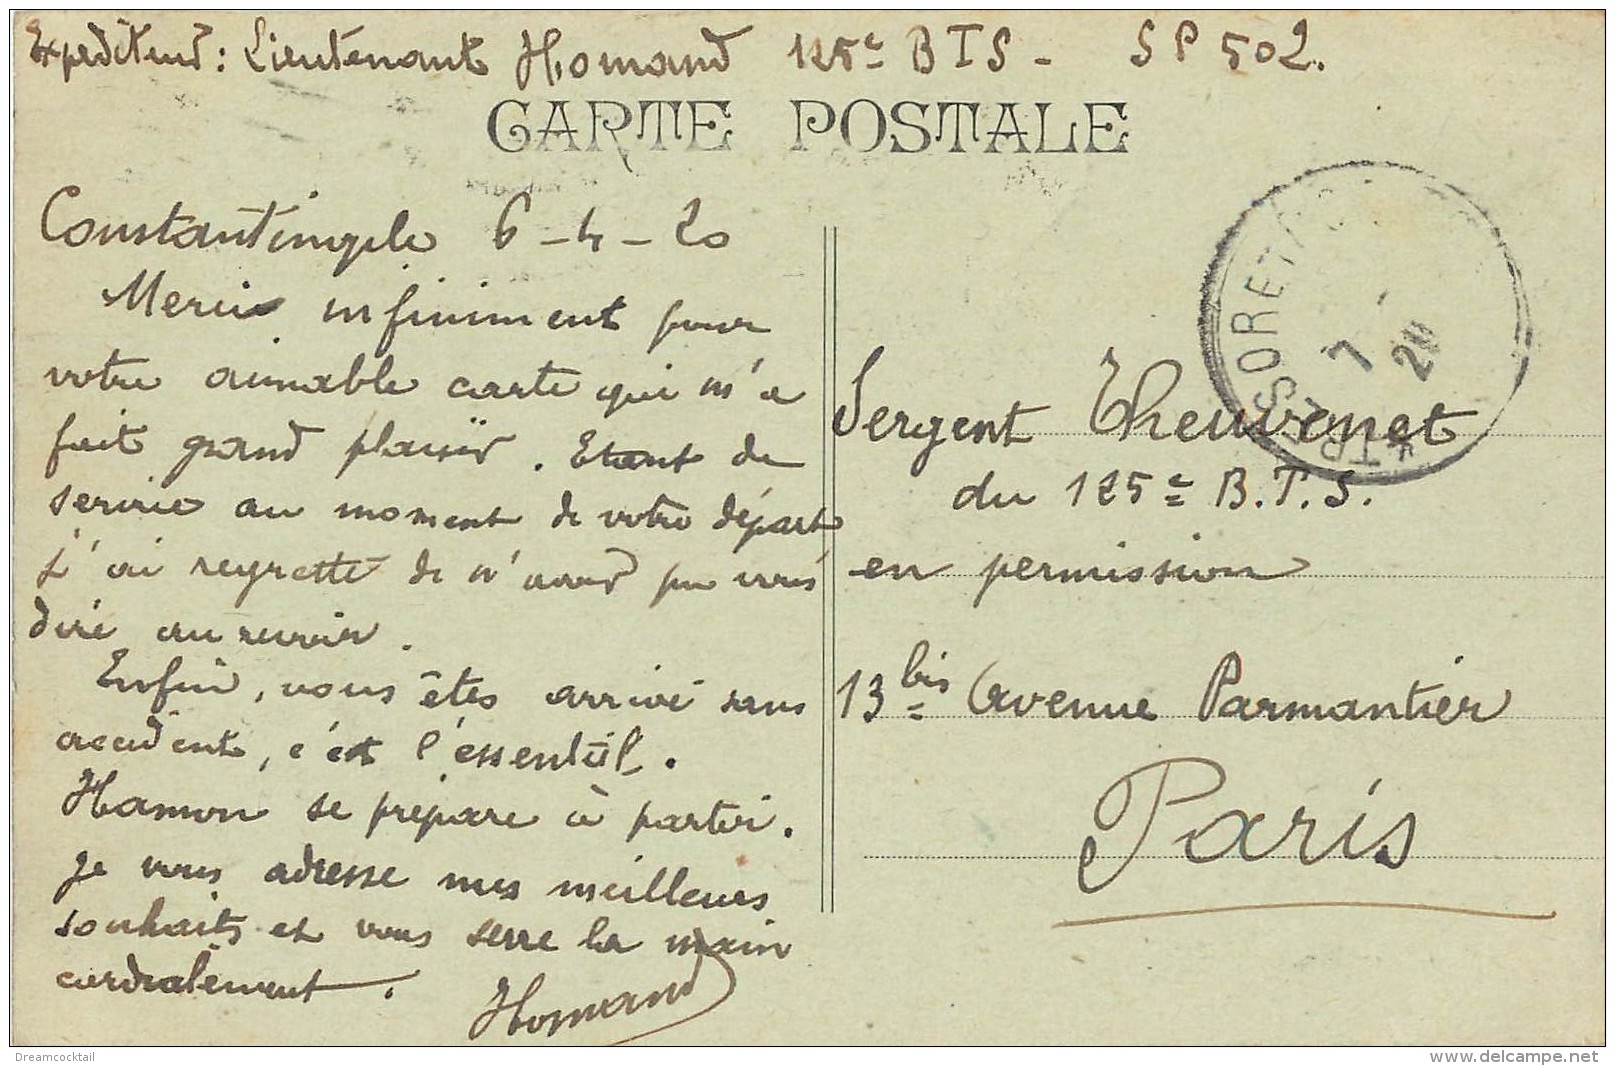 Expéditeur : Lieutenant Homand 125e BTS - SP 502.
CARTE POSTALE
Constantinople 6-4-20
Merci infiniment pour
votre aimable carte qui m'a
fait grand plaisir. Etant de
service au moment de votre départ
j'ai regretté de n'avoir pu vous
dire au revoir.
Enfin, vous êtes arrivé sans
accident, c'est l'essentiel.
Hamon se prépare à partir.
Je vous adresse mes meilleurs
souhaits et vous serre la main
cordialement.
Homand
TRESOR ET
7
20
Sergent Theuvenet
du 125e B.T.S.
en permission
13 bis Avenue Parmantier
Paris
Dreamcocktail
www.delcampe.net